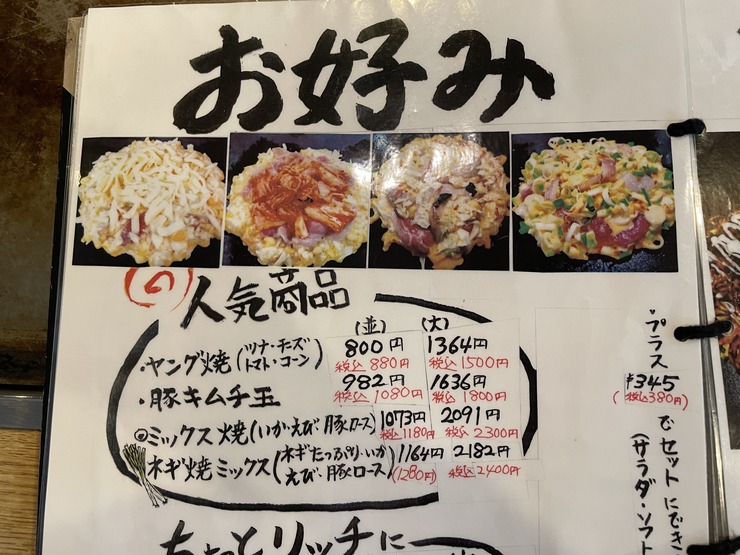 お好み
の
人気商品
(並) (大)
・ヤング焼(ツナ・チーズ トマト・コーン) 800円 1364円
税込880円 税込1500円
・豚キムチ玉 982円 1636円
税込1080円 税込1800円
ミックス焼(いか・えび・豚ロース) 1073円 2091円
税込1180円 税込2300円
ネギ焼ミックス(ネギたっぷり・いか えび・豚ロース) 1164円 2182円
(1280円) 税込2400円
ちょっとリッチに
・プラス
¥345
(税込380円)
でセットにでき
(サラダ・ソフト